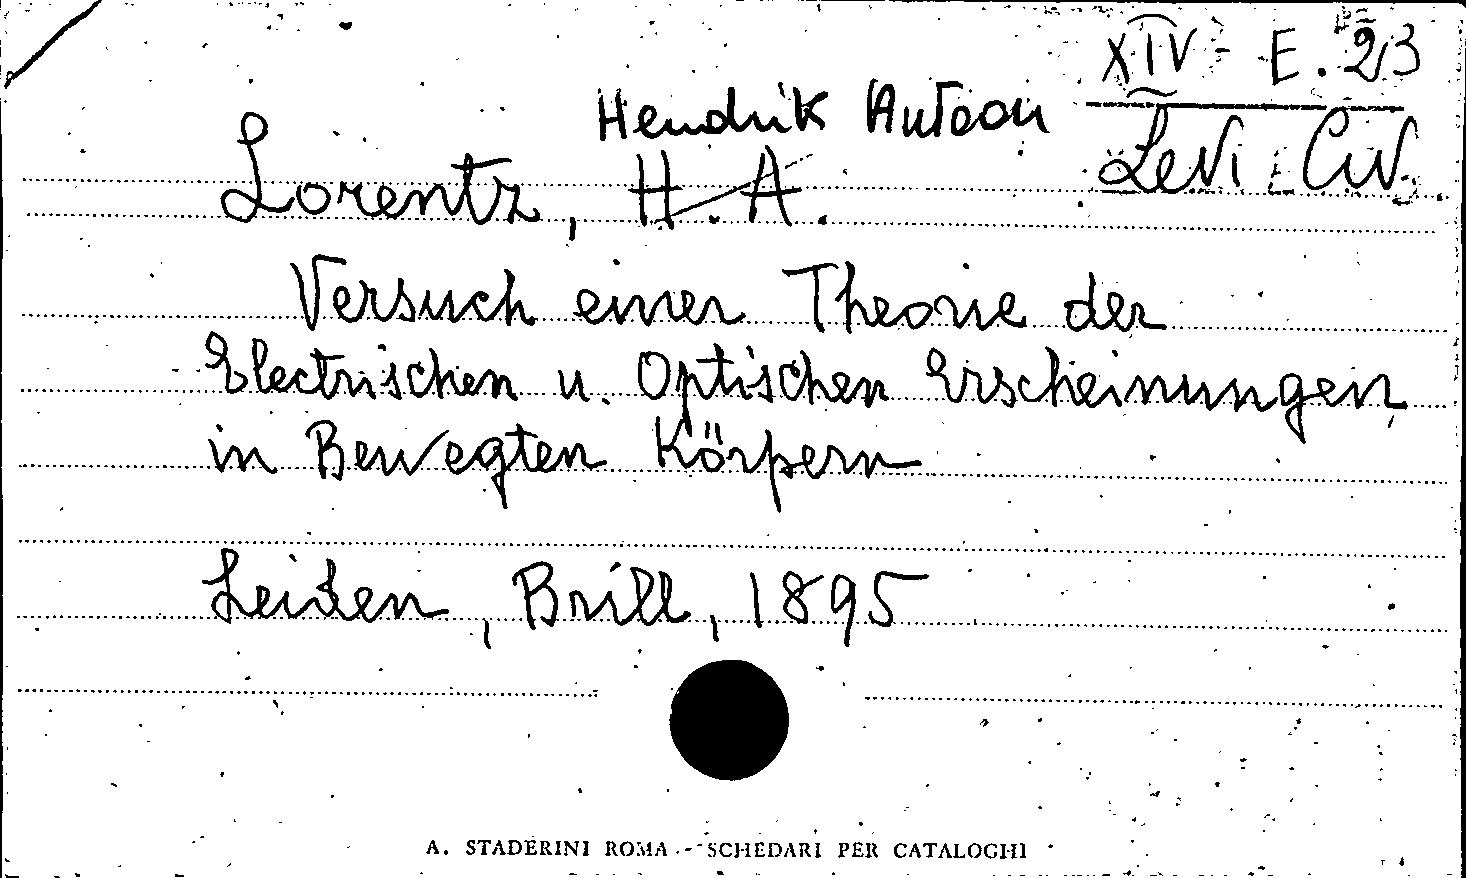 XIV - E. 23
Hendrik Antoon
Levi Civ.
Lorentz, H. A.
Versuch einer Theorie der
Electrischen u. Optischen Erscheinungen
in Bewegten Körpern
Leiden, Brill, 1895
A. STADERINI ROMA - SCHEDARI PER CATALOGHI